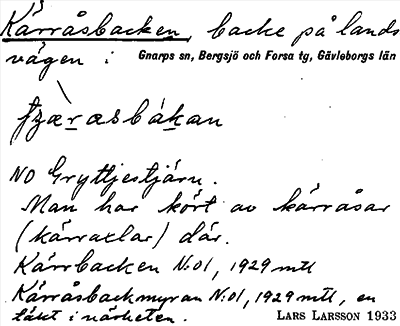 Kärråsbacken, backe på lands
vägen i Gnarps sn, Bergsjö och Forsa tg, Gävleborgs län
NO Gryttjestjärn.
Man har kört av kärråsar
(kärraxlar) där.
Kärrbacken N:o1, 1929 mtl
Kärråsbackmyran N:o1, 1929 mtl, en
täkt i närheten. LARS LARSSON 1933